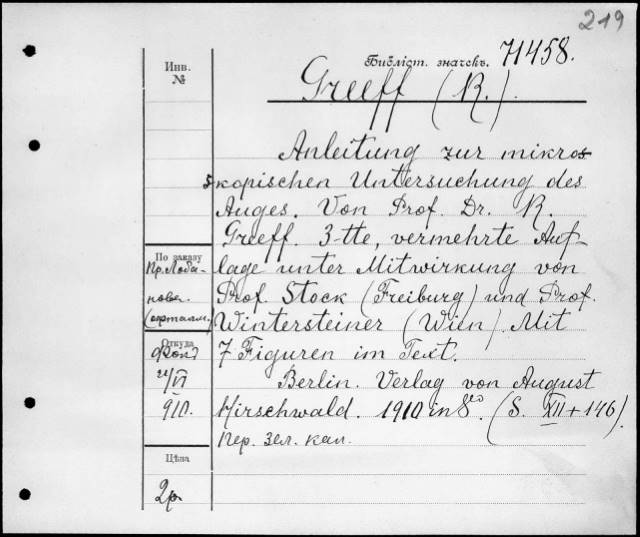 219
Инв.
№
Библіот. значекъ. 71458.
Greeff (R.).
Anleitung zur mikros-
kopischen Untersuchung des
Auges. Von Prof. Dr. R.
Greeff. 3-tte, vermehrte Auf-
lage unter Mitwirkung von
Prof. Stock (Freiburg) und Prof.
Wintersteiner (Wien). Mit
7 Figuren im Text.
Berlin. Verlag von August
Hirschwald. 1910 in 8°. (S. XII + 146).
пер. зел. кал.
По заказу
Пр. Лоба-
нова.
Откуда
Фонд
VI
910.
Цѣна
2р